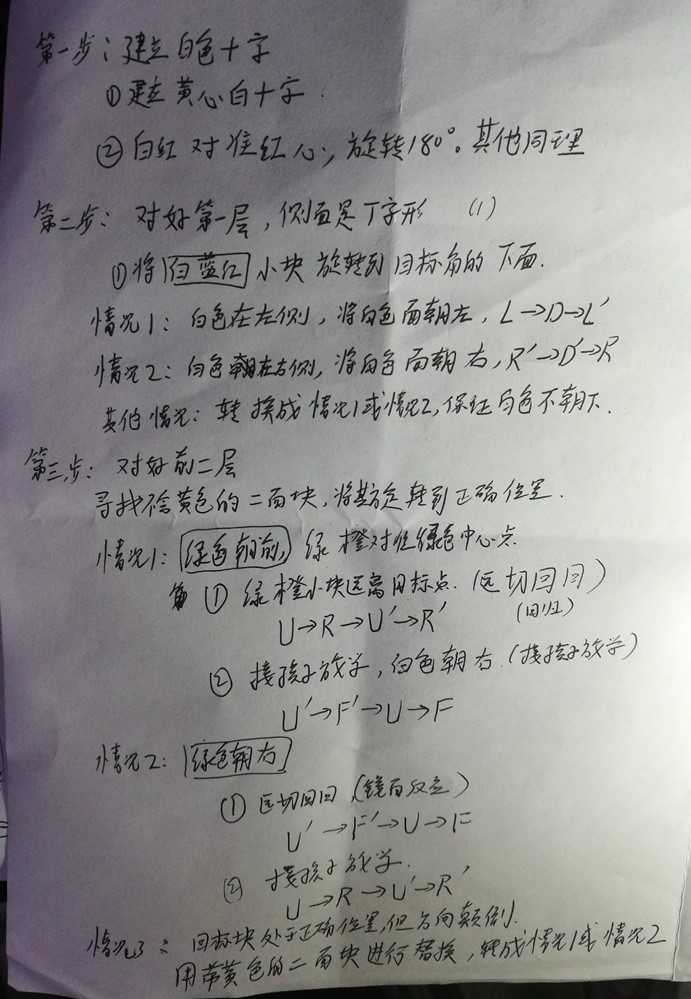 第一步：建立白色十字
①建立黄心白十字.
②白红对准红心，旋转180°。其他同理
第二步：对好第一层，侧面是丁字形 (1)
①将白蓝红小块旋转到目标角的下面.
情况1：白色在左侧，将白色面朝左，L→D→L'
情况2：白色朝在右侧，将白色面朝右，R'→D'→R
其他情况：转换成情况1或情况2,保证白色不朝下.
第三步：对好前二层
寻找不含黄色的二面块，将其旋转到正确位置.
情况1：绿色朝前，绿橙对准绿色中心点
①绿橙小块远离目标点.(远切回回)
(回归)
U→R→U'→R'
②接孩子放学，白色朝右.(接孩子放学)
U'→F'→U→F
情况2：绿色朝右
①远切回回(镜面反应)
U'→F'→U→F
②接孩子放学.
U→R→U'→R'
情况3：目标块处于正确位置,但方向颠倒.
用带黄色的二面块进行替换，转成情况1或情况2